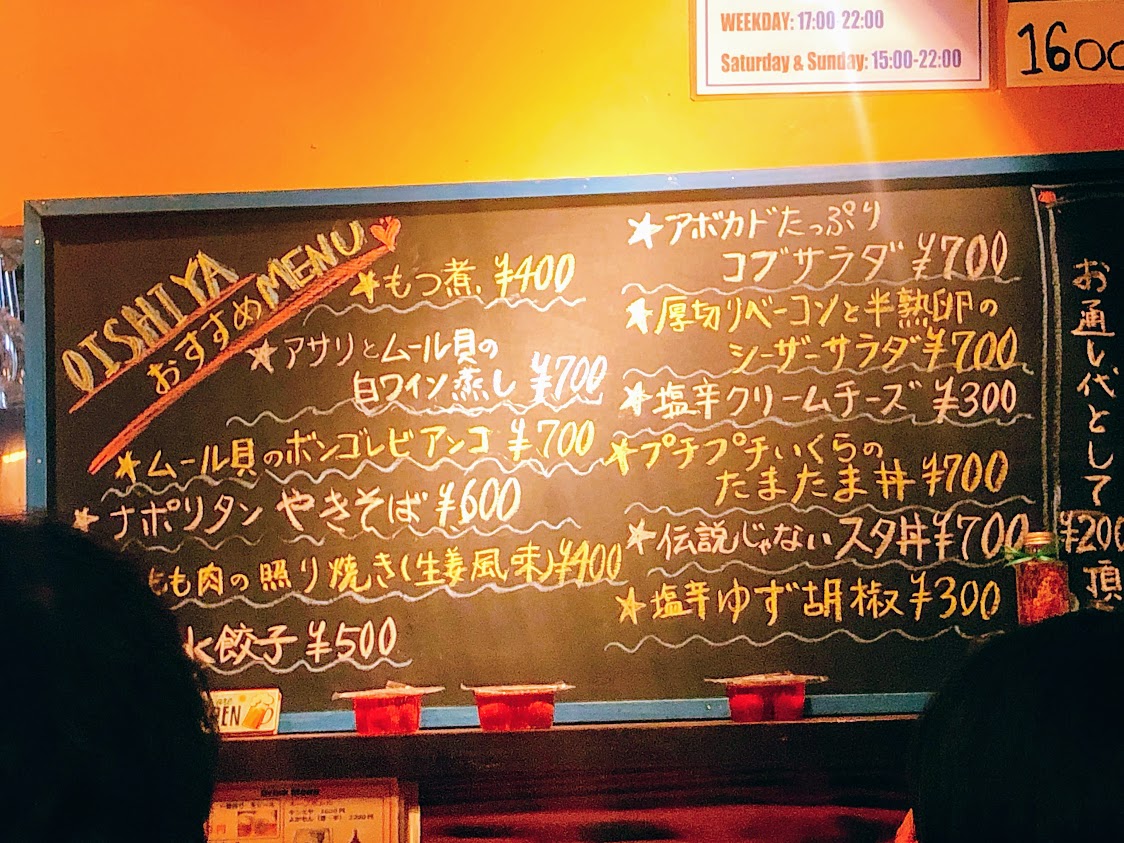 WEEKDAY: 17:00-22:00
Saturday & Sunday: 15:00-22:00
1600
OISHIYA
おすすめMENU
もつ煮 ¥400
アサリとムール貝の
白ワイン蒸し ¥700
ムール貝のボンゴレビアンコ ¥700
ナポリタン やきそば ¥600
もも肉の照り焼き(生姜風味)¥400
水餃子 ¥500
アボカドたっぷり
コブサラダ ¥700
厚切りベーコンと半熟卵の
シーザーサラダ¥700
塩辛クリームチーズ ¥300
プチプチいくらの
たまたま丼 ¥700
伝説じゃないスタ丼¥700
塩辛ゆず胡椒 ¥300
お通し代として
¥200
頂
Drink Menu